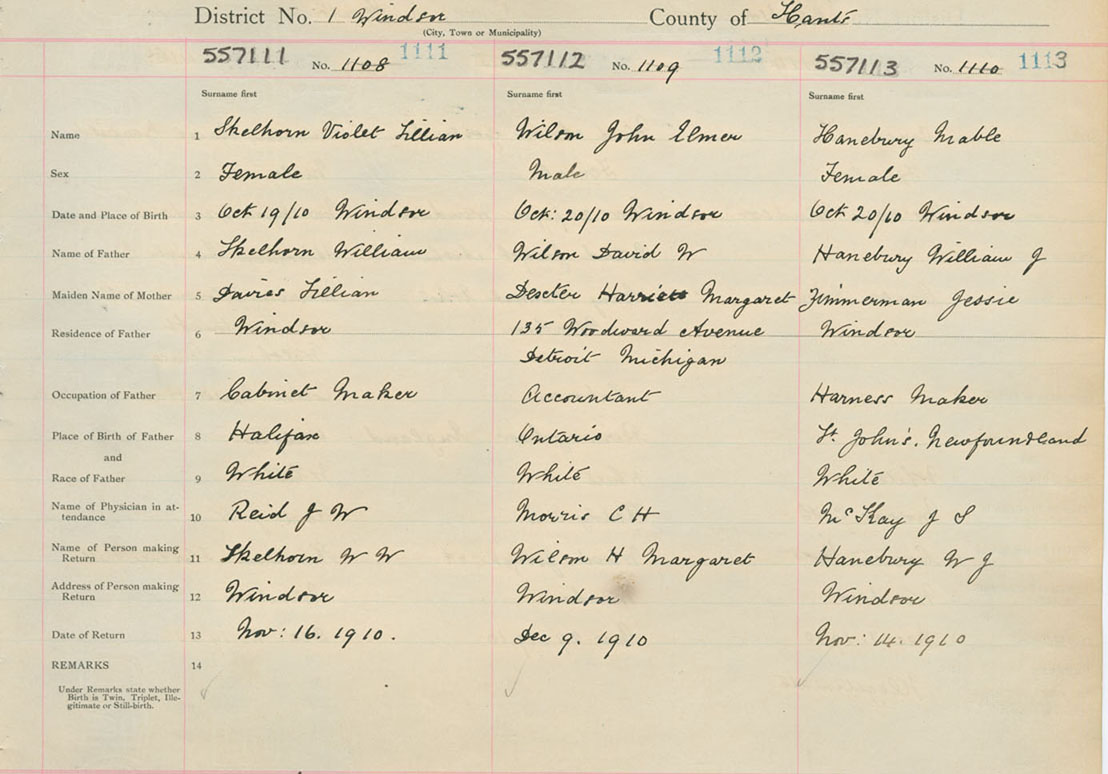 District No. 1 Windsor County of Hants
(City, Town or Municipality)
557111 No. 1108 1111 557112 No. 1109 1112 557113 No. 1110 1113
Surname first Surname first Surname first
Name 1 Skelhorn Violet Lillian Wilson John Elmer Hanebury Mable
Sex 2 Female Male Female
Date and Place of Birth 3 Oct 19/10 Windsor Oct: 20/10 Windsor Oct 20/10 Windsor
Name of Father 4 Skelhorn William Wilson David W Hanebury William J
Maiden Name of Mother 5 Davies Lillian Harriett Margaret Zimmerman Jessie
Residence of Father 6 Windsor 135 Woodward Avenue Windsor
Detroit Michigan
Occupation of Father 7 Cabinet Maker Accountant Harness Maker
Place of Birth of Father 8 Halifax Ontario St John's. Newfoundland
and
Race of Father 9 White White White
Name of Physician in at-
tendance 10 Reid J W Morris C H McKay J S
Name of Person making
Return 11 Skelhorn W W Wilson H Margaret Hanebury W J
Address of Person making
Return 12 Windsor Windsor Windsor
Date of Return 13 Nov: 16. 1910. Dec 9. 1910 Nov: 14. 1910
REMARKS 14
Under Remarks state whether
Birth is Twin, Triplet, Ille-
gitimate or Still-birth.